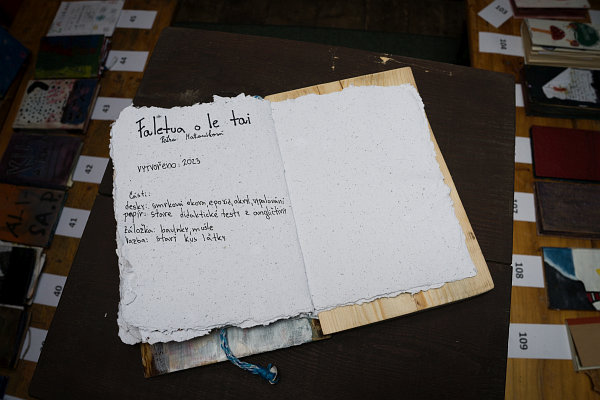 Faletua o le tai
Petra
VYTVOŘENO: 2023
části:
desky: smrková kůra, epoxid, akryl, vypalování
papír: staré didaktické testy z angličtiny
záložka: bavlnky, mušle
vazba: starý kus látky
45
44
43
42
41
40
39
104
107
108
109